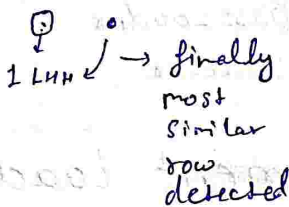 1 LHH → finally
most
similar
row
detected